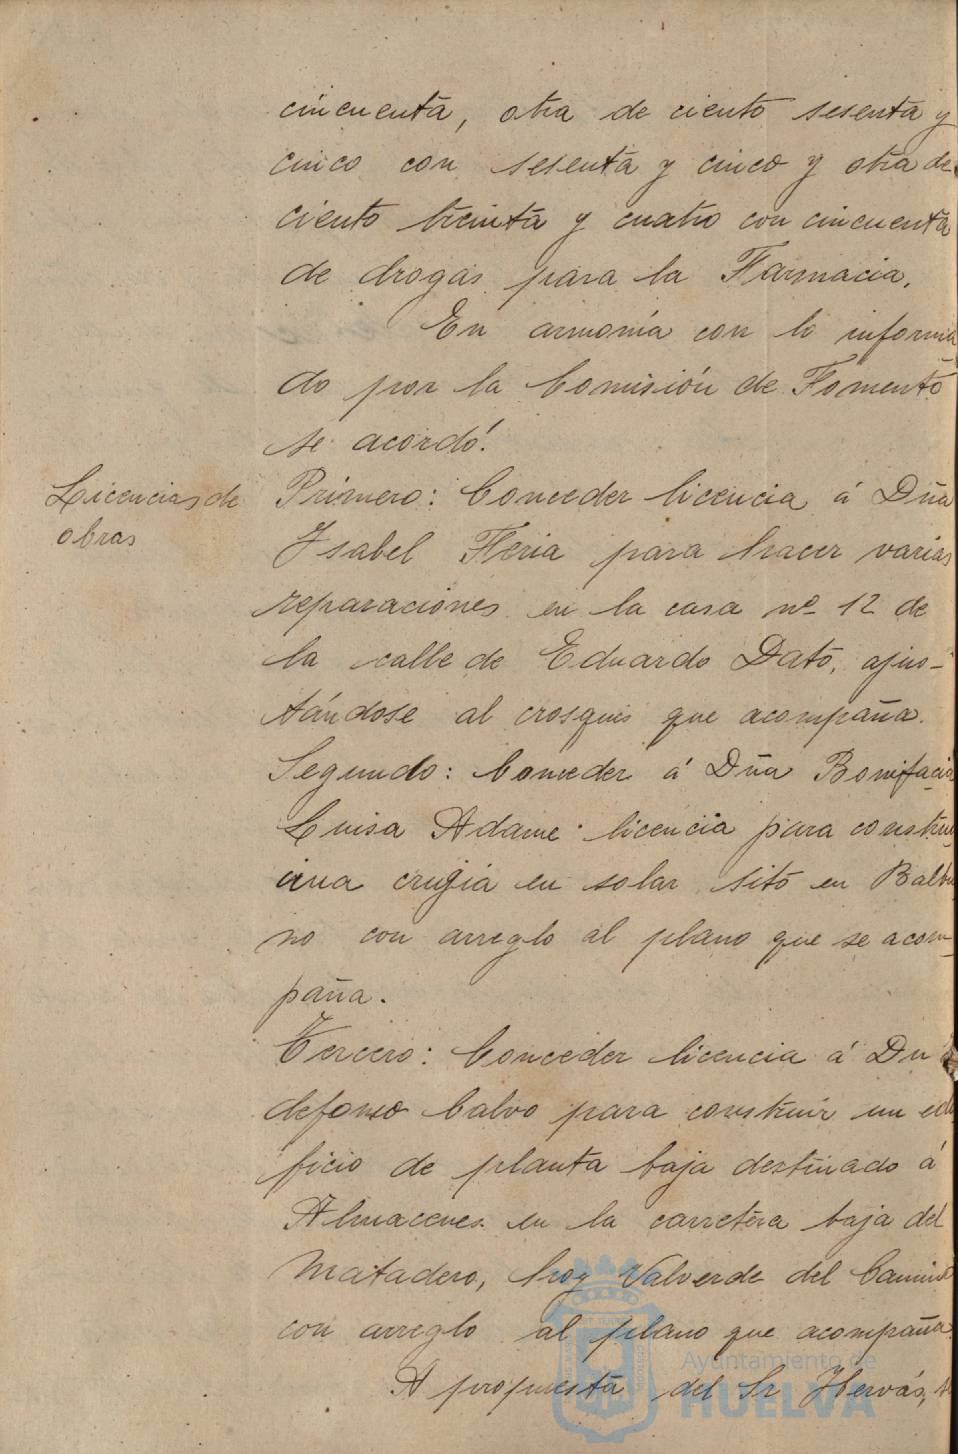 cincuenta, otra de ciento sesenta y
cinco con sesenta y cinco y otra de
ciento treinta y cuatro con cincuenta
de drogas para la Farmacia.
En armonía con lo informa
do por la Comisión de Fomento
se acordó:
Licencias de
obras
Primero: Conceder licencia á Dña
Isabel Feria para hacer varias
reparaciones en la casa nº 12 de
la calle de Eduardo Dato, ajus-
tándose al crosquis que acompaña.
Segundo: Conceder á Dña Bonifacia
Luisa Adame licencia para construir
una crugia en solar sito en Balbu
no con arreglo al plano que se acom-
paña.
Tercero: Conceder licencia á Dn
defonso Calvo para construir un edi
ficio de planta baja destinado á
Almacenes en la carretera baja del
Matadero, hoy Valverde del Camino
con arreglo al plano que acompaña
A propuesta del Sr Hervás,
Ayuntamiento de
HUELVA